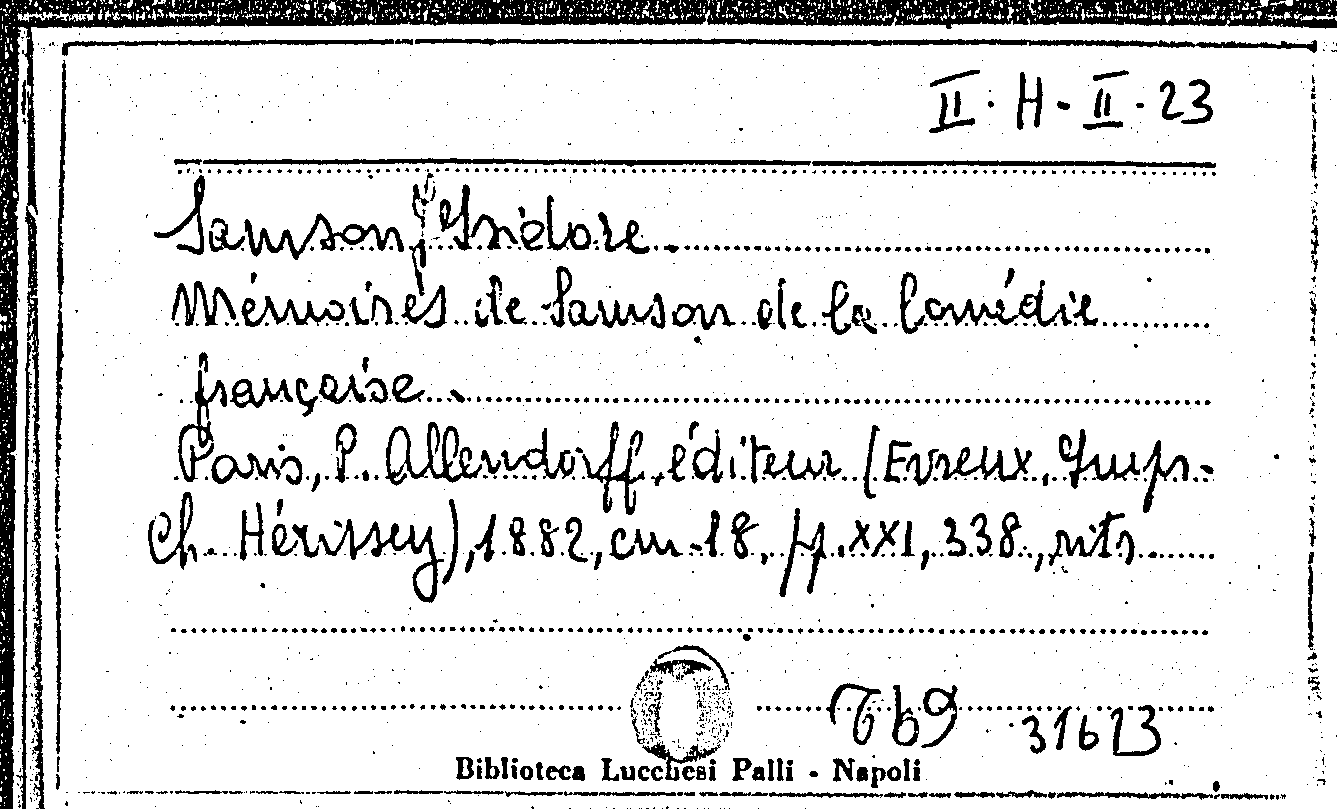 II. H - II. 23
Samson, Isidore.
Mémoires de Samson de la Comédie
française.
Paris, P. Allendorff, éditeur (Evreux, Imp.
Ch. Hérissey), 1882, cm. 18, pp. XXI, 338, rits.
31613
Biblioteca Lucchesi Palli - Napoli